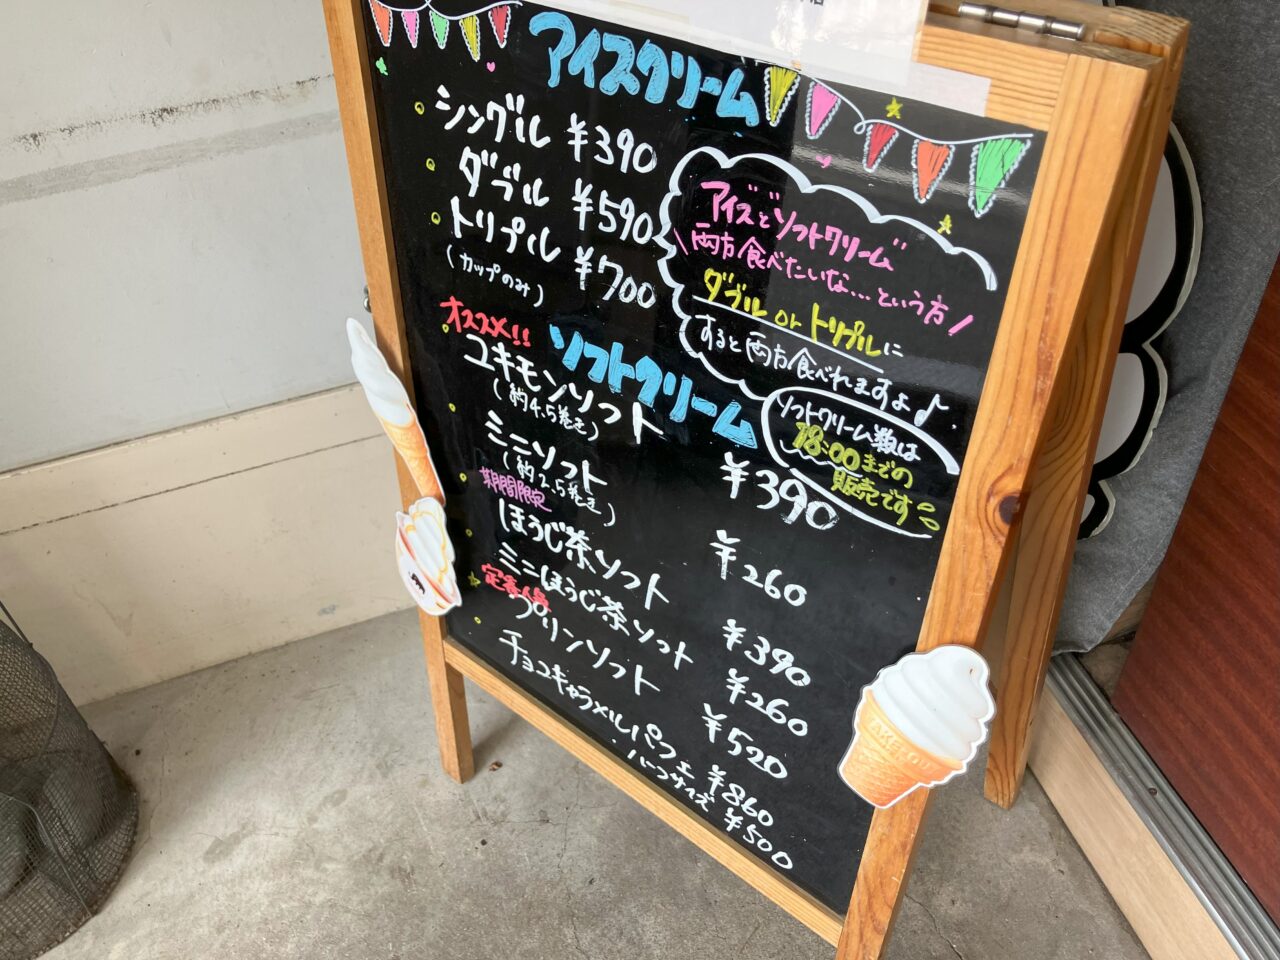 アイスクリーム
シングル ¥390
ダブル ¥590
トリプル ¥700
(カップのみ)
アイスとソフトクリーム
\両方食べたいな...という方/
ダブル or トリプルに
すると両方食べれますよ♪
オススメ!!
ソフトクリーム
ソフトクリーム類は
18:00までの
販売です
ユキモンソフト ¥390
(約4.5巻き)
ミニソフト ¥260
(約2.5巻き)
期間限定
ほうじ茶ソフト ¥390
ミニほうじ茶ソフト ¥260
定番人気
プリンソフト ¥520
チョコキャラメルパフェ ¥860
ハーフサイズ ¥500
TAKE OUT